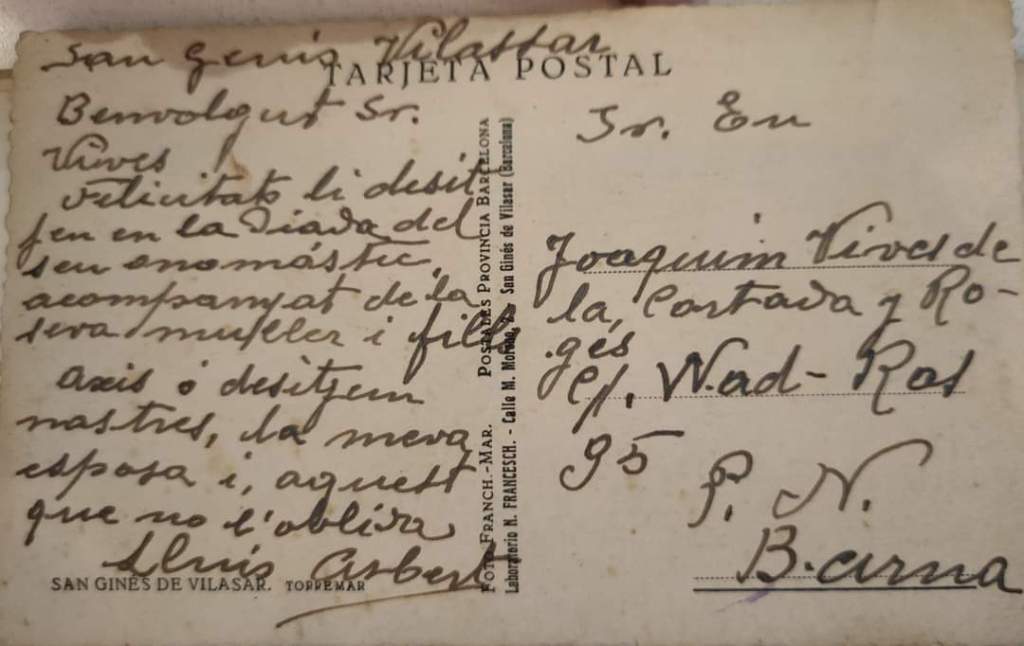 San Genis Vilassar
TARJETA POSTAL
Benvolgut Sr.
Vives
Felicitats li desit
jen en la Diada del
seu onomástic,
acompanyat de la
seva muller i fills
axis o desitjem
nastres, la meva
esposa i, aquest
que no l'oblida
Lluis Asbert
SAN GINÉS DE VILASAR. TORREMAR
FOTO FRANCH.-MAR. POSTALES PROVINCIA BARCELONA
Laboratorio N. FRANCESCH. - Calle M. San Ginés de Vilasar (Barcelona)
Sr. En
Joaquim Vives de
la Cortada y Ro-
gés
C/. Wad-Ras
95 P. N.
B.arna